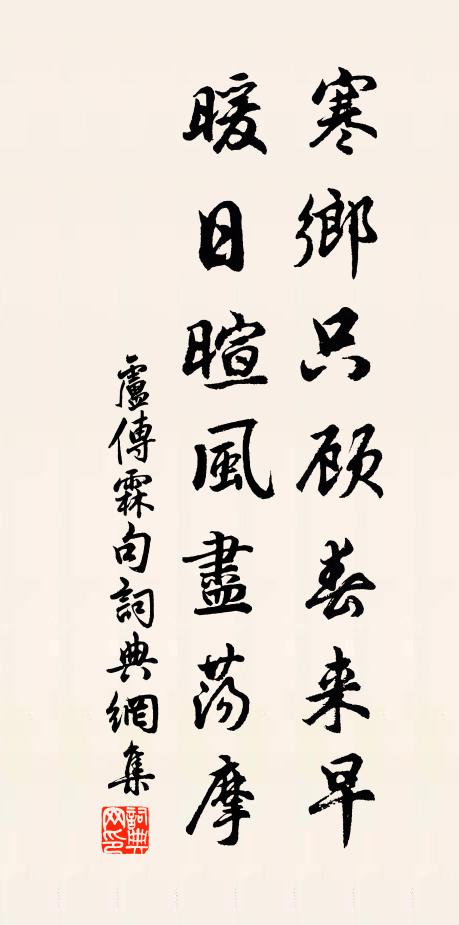 寒鄉只顾春来早
暖日暄風盡蕩摩
盧傳霖句詞典網集
詞典網印